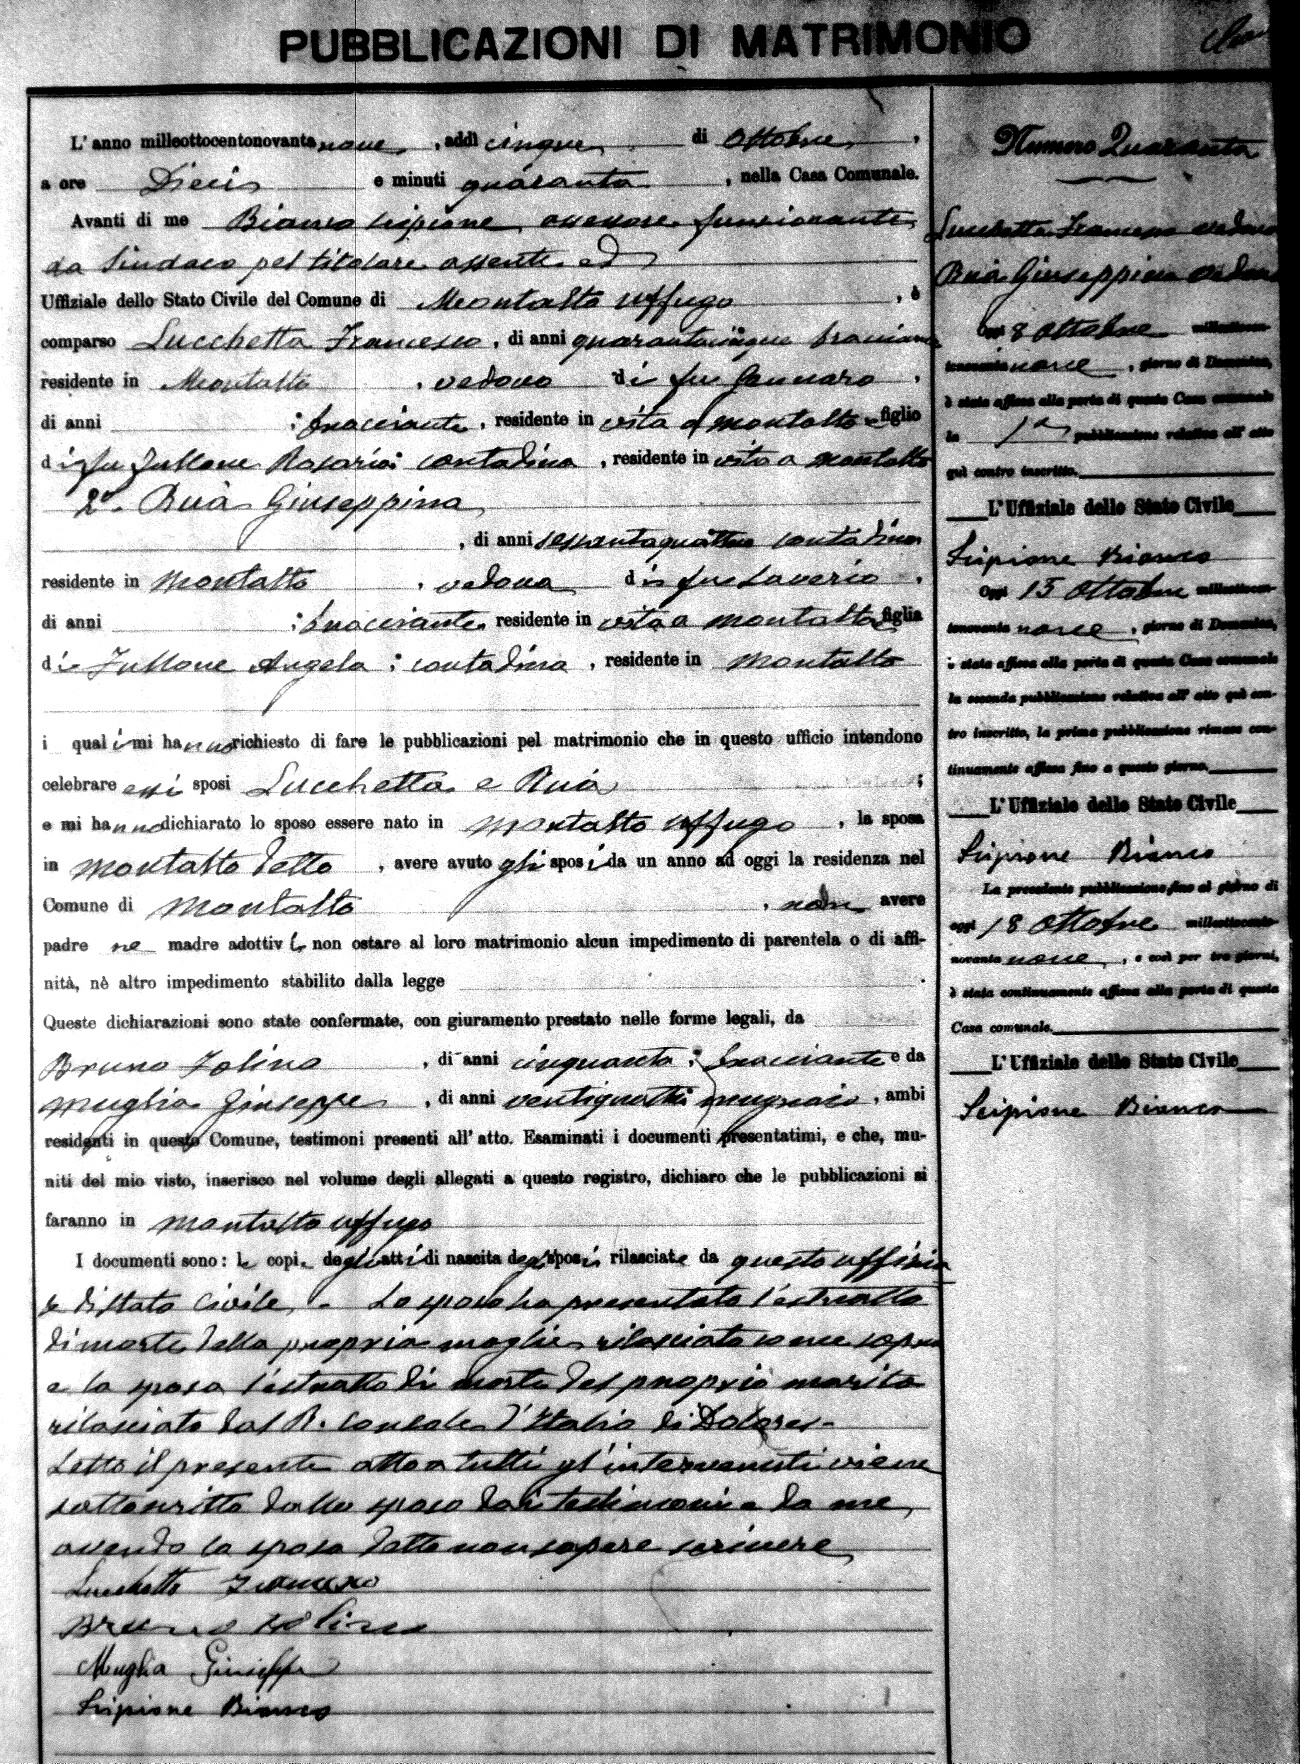 PUBBLICAZIONI DI MATRIMONIO
L' anno milleottocentonovanta nove, addì cinque di Ottobre,
a ore Dieci e minuti quaranta, nella Casa Comunale.
Avanti di me Bianco Scipione assessore funzionante
da Sindaco pel titolare assente ed
Uffiziale dello Stato Civile del Comune di Montalto Uffugo, è
comparso Lucchetta Francesco, di anni quarantacinque bracciante
residente in Montalto, vedovo di fu Gennaro,
di anni ; bracciante, residente in vita a Montalto e figlio
di fu Rosaria; contadina, residente in vita a Montalto
2º. Ruà Giuseppina
, di anni sessantaquattro contadina
residente in Montalto, vedova di fu Saverio,
di anni ; bracciante residente in vita a Montalto, figlia
di Angela; contadina, residente in Montalto
i quali mi hanno richiesto di fare le pubblicazioni pel matrimonio che in questo ufficio intendono
celebrare essi sposi Lucchetta e Ruà ;
e mi hanno dichiarato lo sposo essere nato in Montalto Uffugo, la sposa
in Montalto detto, avere avuto gli sposi da un anno ad oggi la residenza nel
Comune di Montalto, non avere
padre ne madre adottivi, non ostare al loro matrimonio alcun impedimento di parentela o di affi-
nità, nè altro impedimento stabilito dalla legge .
Queste dichiarazioni sono state confermate, con giuramento prestato nelle forme legali, da
Bruno, di anni cinquanta; bracciante e da
Muglia Giuseppe, di anni ventiquattro mugnaio, ambi
residenti in questo Comune, testimoni presenti all' atto. Esaminati i documenti presentatimi, e che, mu-
niti del mio visto, inserisco nel volume degli allegati a questo registro, dichiaro che le pubblicazioni si
faranno in Montalto Uffugo
I documenti sono: le copie degli atti di nascita degli sposi rilasciate da questo Uffizio
di Stato Civile. Lo sposo ha presentato l'estratto
di morte della propria moglie rilasciato come sopra
e la sposa l'estratto di morte del proprio marito
rilasciato dal R. Console d'Italia di Dolores.
Letto il presente atto a tutti gl'intervenuti viene
sottoscritto dallo sposo dai testimoni e da me,
avendo la sposa detto non sapere scrivere
Lucchetta Francesco
Bruno
Muglia Giuseppe
Scipione Bianco
Numero Quaranta
Lucchetta Francesco vedovo
Ruà Giuseppina vedova
Oggi 8 Ottobre milleottocen-
tonovanta nove, giorno di Domenica,
è stata affissa alla porta di questa Casa comunale
la 1ª pubblicazione relativa all' atto
quì contro inscritto.
L' Uffiziale dello Stato Civile
Scipione Bianco
Oggi 15 Ottobre milleottocen-
tonovanta nove, giorno di Domenica,
è stata affissa alla porta di questa Casa comunale
la seconda pubblicazione relativa all' atto quì con-
tro inscritto, la prima pubblicazione rimase con-
tinuamente affissa fino a questo giorno.
L' Uffiziale dello Stato Civile
Scipione Bianco
La precedente pubblicazione fino al giorno di
oggi 18 Ottobre milleottocento-
novanta nove, e così per tre giorni,
è stata continuamente affissa alla porta di questa
Casa comunale.
L' Uffiziale dello Stato Civile
Scipione Bianco